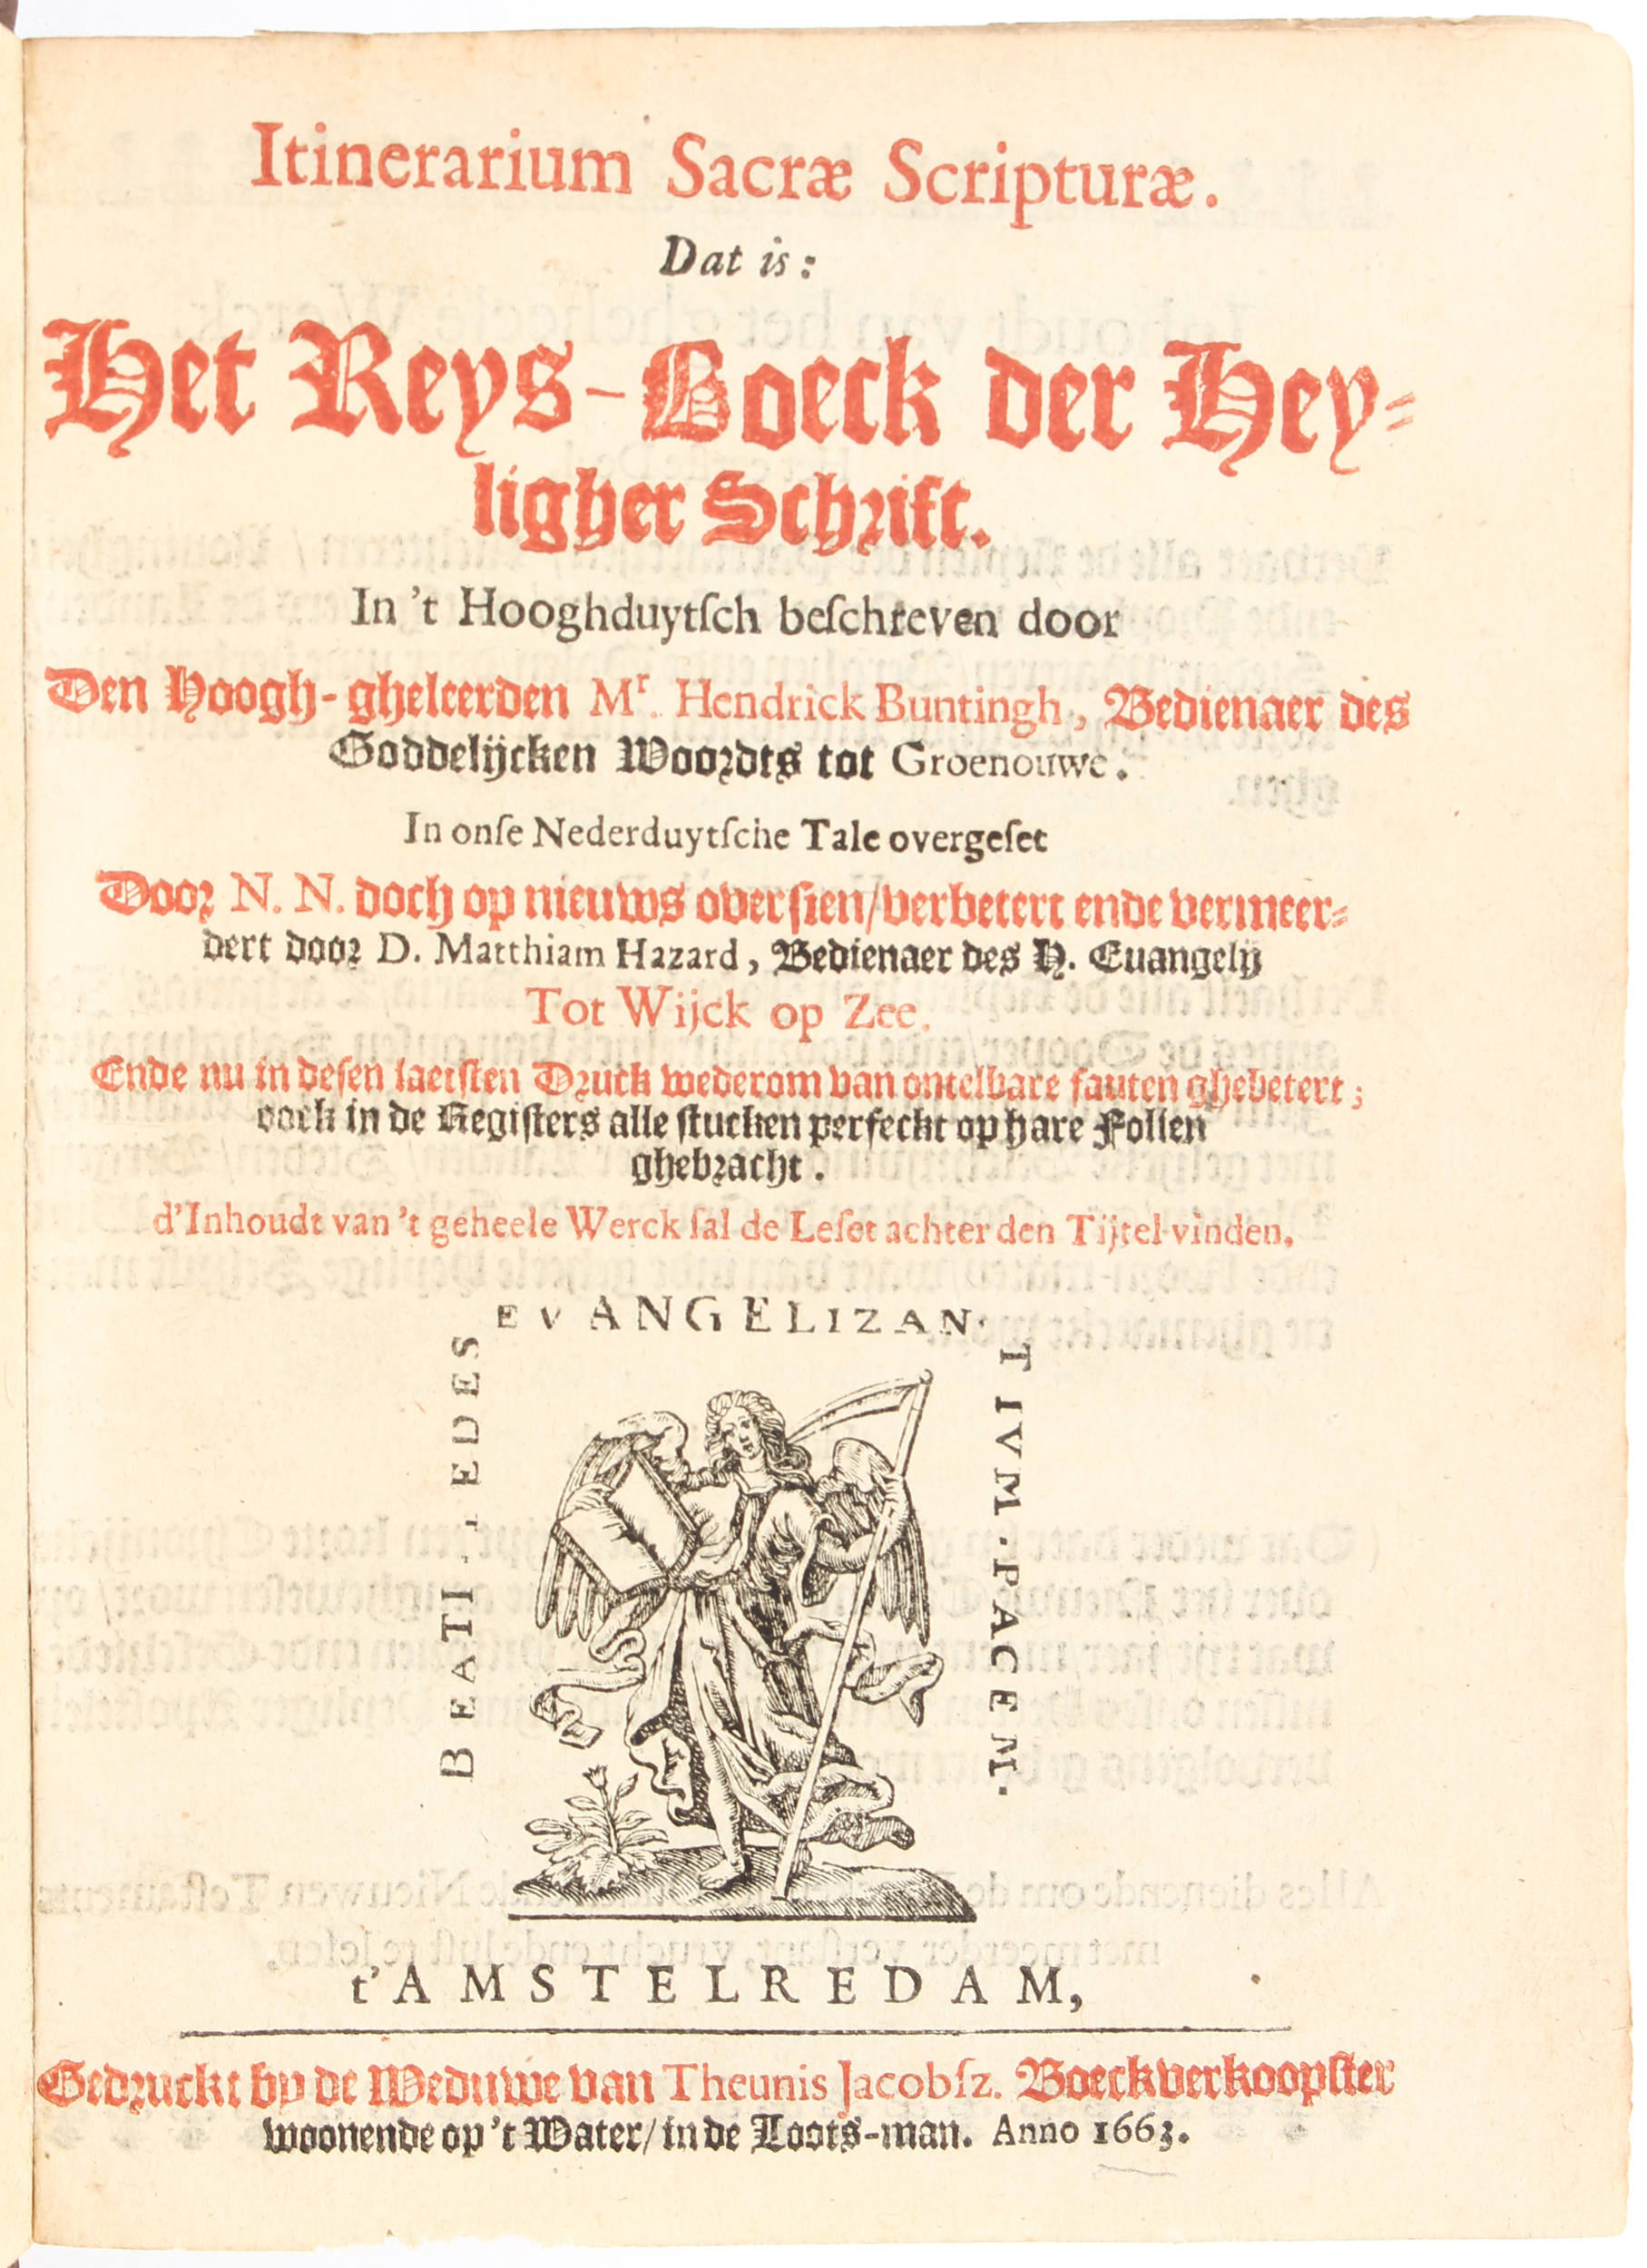 Itinerarium Sacræ Scripturæ.
Dat is:
Het Reys-Boeck der Hey-
ligher Schrift.
In 't Hooghduytſch beſchreven door
Den Hoogh-gheleerden Mr. Hendrick Buntingh, Bedienaer des
Goddelijcken Woordts tot Groenouwe.
In onſe Nederduytſche Tale overgeſet
Door N. N. doch op nieuws overſien/verbetert ende vermeer-
dert door D. Matthiam Hazard, Bedienaer des H. Euangelij
Tot Wijck op Zee.
Ende nu in deſen laetſten Druck wederom van ontelbare fauten ghebetert;
oock in de Regiſters alle ſtucken perfeckt op hare Folien
ghebracht.
d'Inhoudt van 't geheele Werck ſal de Leſer achter den Tijtel vinden.
BEATI PEDES
EVANGELIZAN
TIVM. PACEM.
t'AMSTELREDAM,
Gedruckt by de Weduwe van Theunis Jacobſz. Boeckverkoopſter
woonende op 't Water/in de Loots-man. Anno 1663.